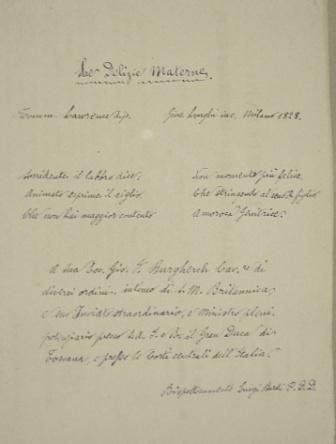 Le Delizie Materne
Tomm. Lawrence dip. Gius. Longhi inc. Milano 1828.
Sorridente il labbro dice, Non momento più felice
Animato esprime il ciglio Che stringendo al sen il figlio
Che non hai maggior contento Amorosa Genitrice.
A Sua Ecc. Gio. F. Burghersh Cav. re di
diversi ordini, di S. M. Britannica,
e suo Inviato straordinario, e Ministro pleni-
potenziario presso S. A. I. e R. il Gran Duca di
Toscana, e presso le Corti centrali dell'Italia.
Rispettosamente Luigi Bardi D. D. D.